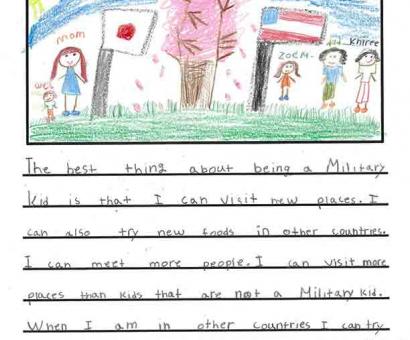 mom
Zoem.
Khiree
me
The best thing about being a Military
Kid is that I can visit new places. I
can also try new foods in other countries.
I can meet more people. I can visit more
places than kids that are not a Military Kid.
When I am in other countries I can try